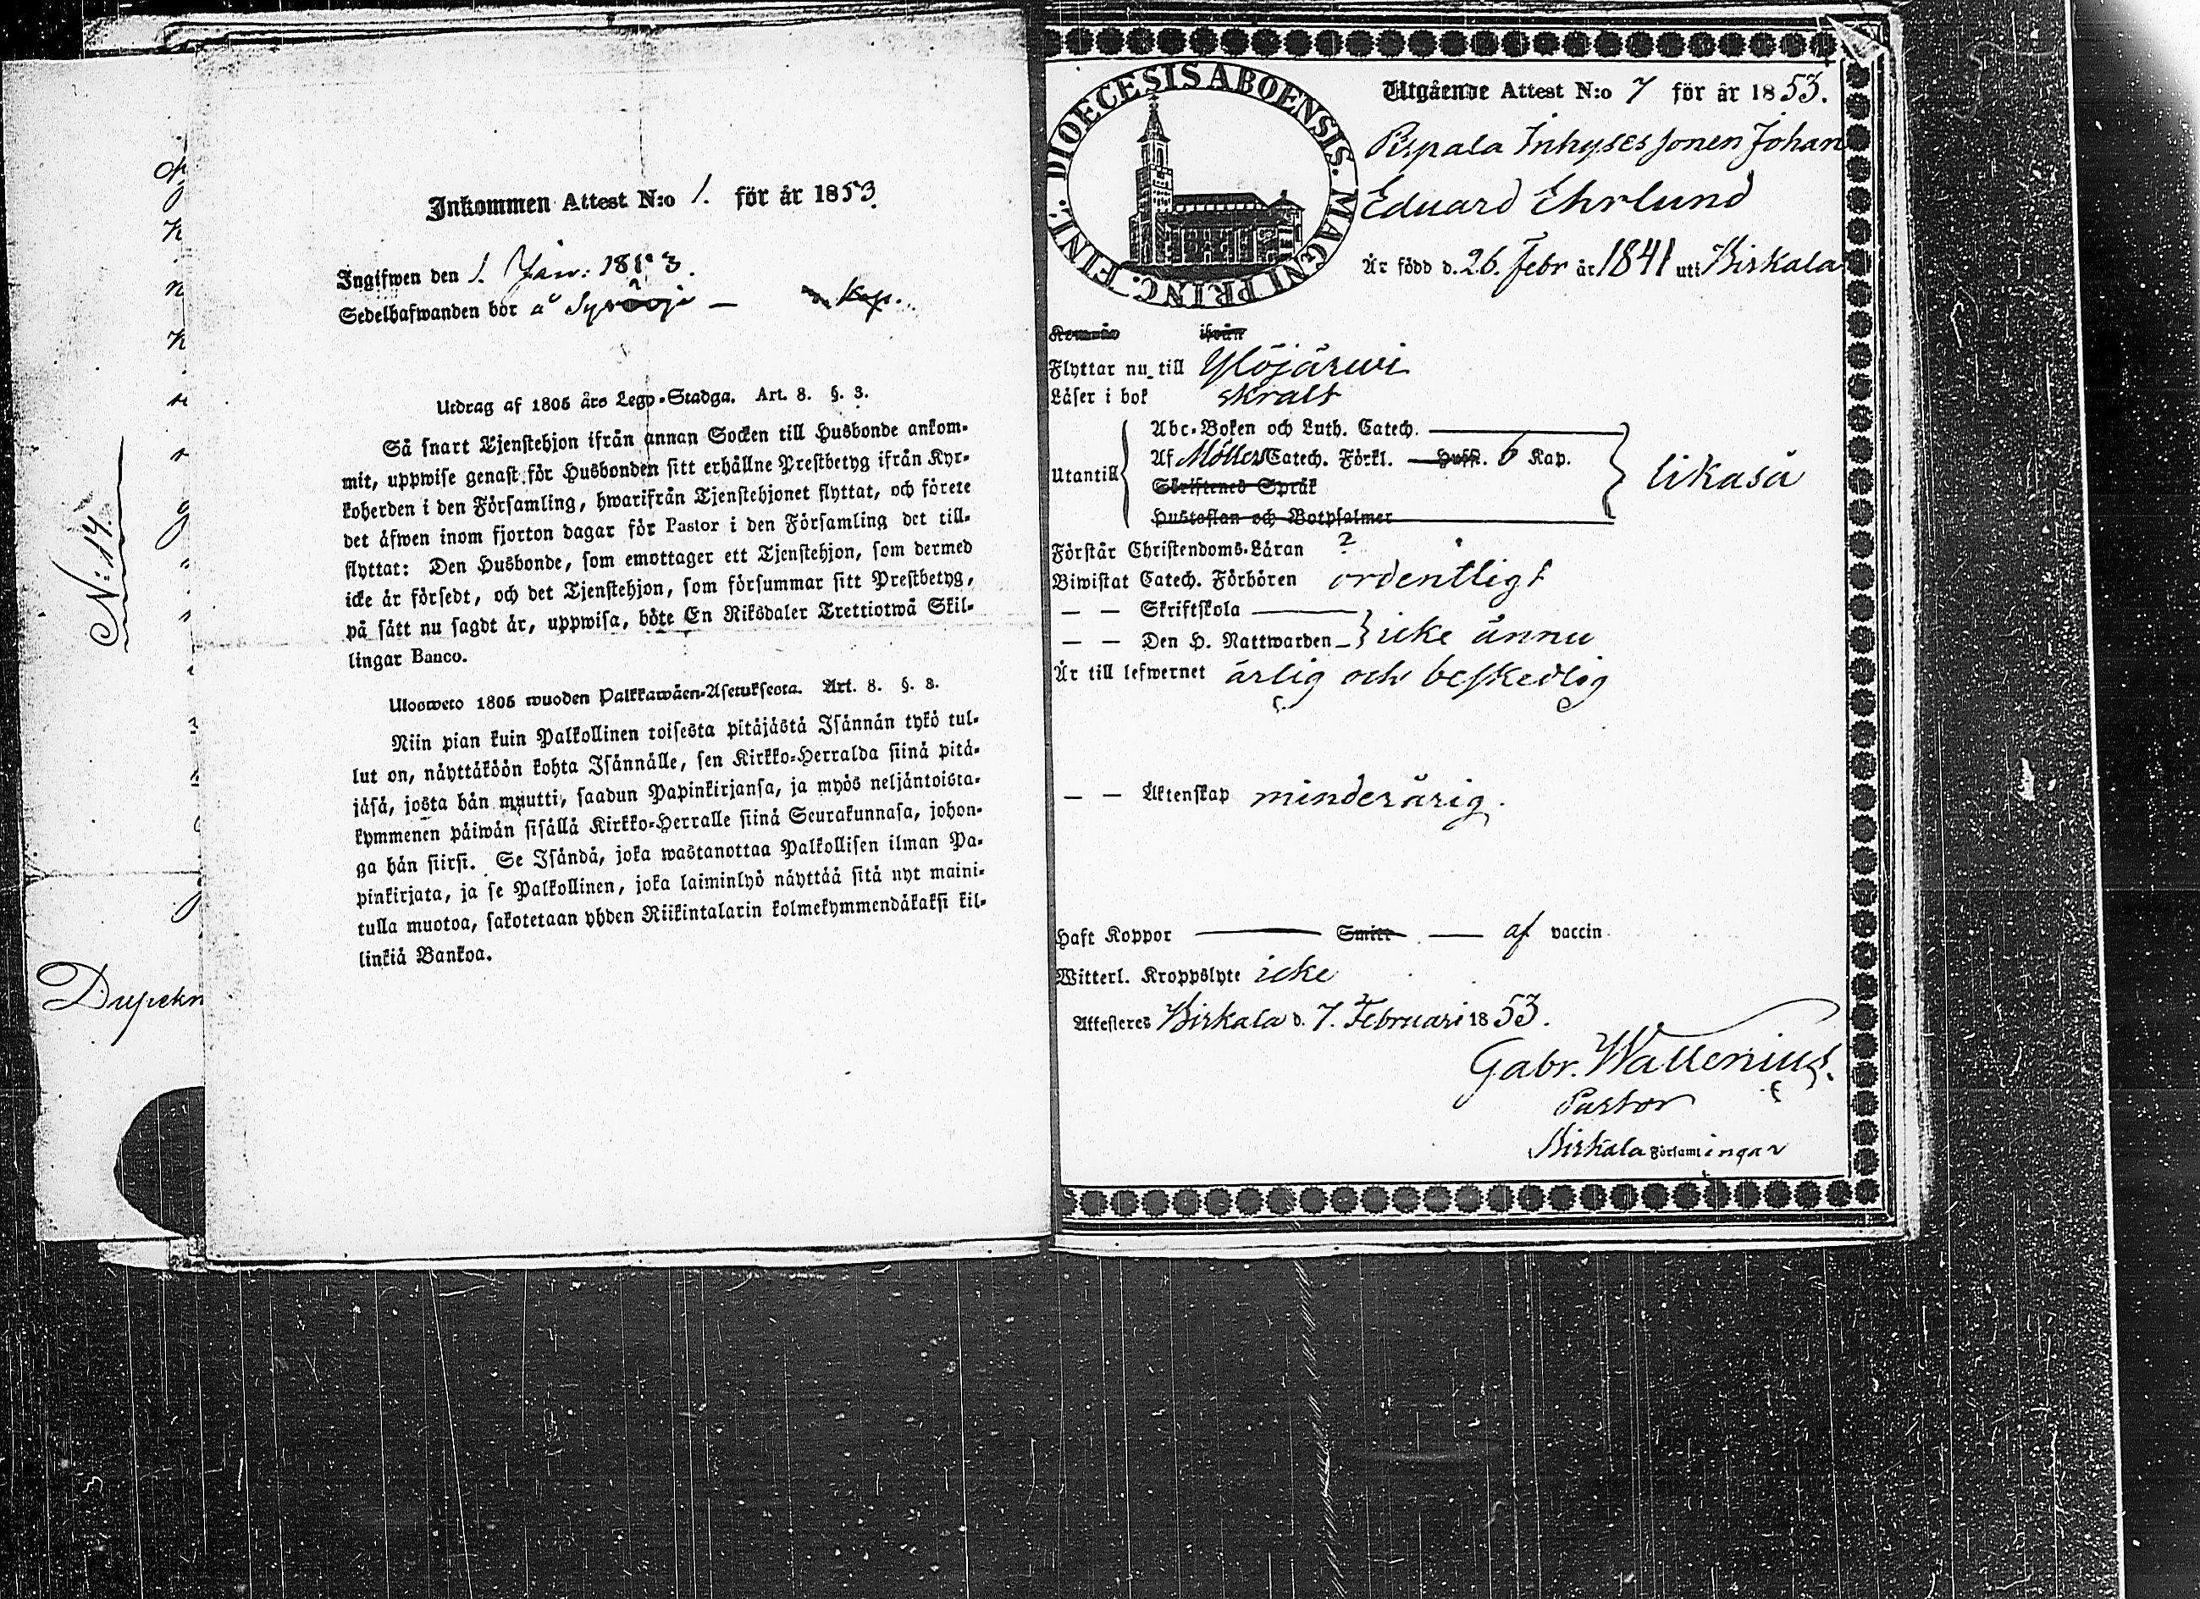 N: 14.
Inkommen Attest N:o 1. för år 1853.
Ingifwen den 1.
Sedelhafwanden bor å
Utdrag af 1805 års Lego-Stadga. Art. 8. §. 3.
Så snart Tjenstehjon ifrån annan Socken till Husbonde ankom-
mit, uppwise genast för Husbonden sitt erhållne Prestbetyg ifrån Kyr-
koherden i den Församling, hwarifrån Tjenstehjonet flyttat, och förete
det äfwen inom fjorton dagar för Pastor i den Församling det till-
flyttat: Den Husbonde, som emottager ett Tjenstehjon, som dermed
icke är försedt, och det Tjenstehjon, som försummar sitt Prestbetyg,
på sätt nu sagdt är, uppwisa, böte En Riksdaler Trettiotwå Skil-
lingar Banco.
Ulosweto 1805 wuoden Palkkawäen-Asetuksesta. Art. 8. §. 3.
Niin pian kuin Palkollinen toisesta pitäjästä Isännän tykö tul-
lut on, näyttäköön kohta Isännälle, sen Kirkko-Herralda siinä pitä-
jäsä, josta hän muutti, saadun Papinkirjansa, ja myös neljäntoista-
kymmenen päiwän sisällä Kirkko-Herralle siinä Seurakunnasa, johon-
ga hän siirsi. Se Isändä, joka wastanottaa Palkollisen ilman Pa-
pinkirjata, ja se Palkollinen, joka laiminlyö näyttää sitä nyt maini-
tulla muotoa, sakotetaan yhden Riikintalarin kolmekymmendäkaksi kil-
linkiä Bankoa.
DIOECESIS ABOENSIS. MAGNI PRINC. FINL.
Utgående Attest N:o 7 för år 1853.
Rspala Inhyses sonen Johan
Eduard Ehrlund
Är född d. 26. Febr år 1841 uti Birkala
ifrån
Flyttar nu till Ylöjärwi
Läser i bok skralt
Abc-Boken och Luth. Catech.
Utantill Af Möllers Catech. Förkl. Hufst. 6 Kap. likaså
Skriftenes Språk
Hustaflan och Botpsalmer
Förstår Christendoms-Läran ?
Biwistat Catech. Förhören ordentligt
— — Skriftskola
— — Den H. Nattwarden icke ännu
Är till lefwernet ärlig och beskedlig
— — Äktenskap minderårig.
Haft Koppor — Smitt — af vaccin
Witterl. Kroppslyte icke
Attesteres Birkala d. 7. Februari 1853.
Gabr. Wallenius.
Pastor
Birkala Församlingar